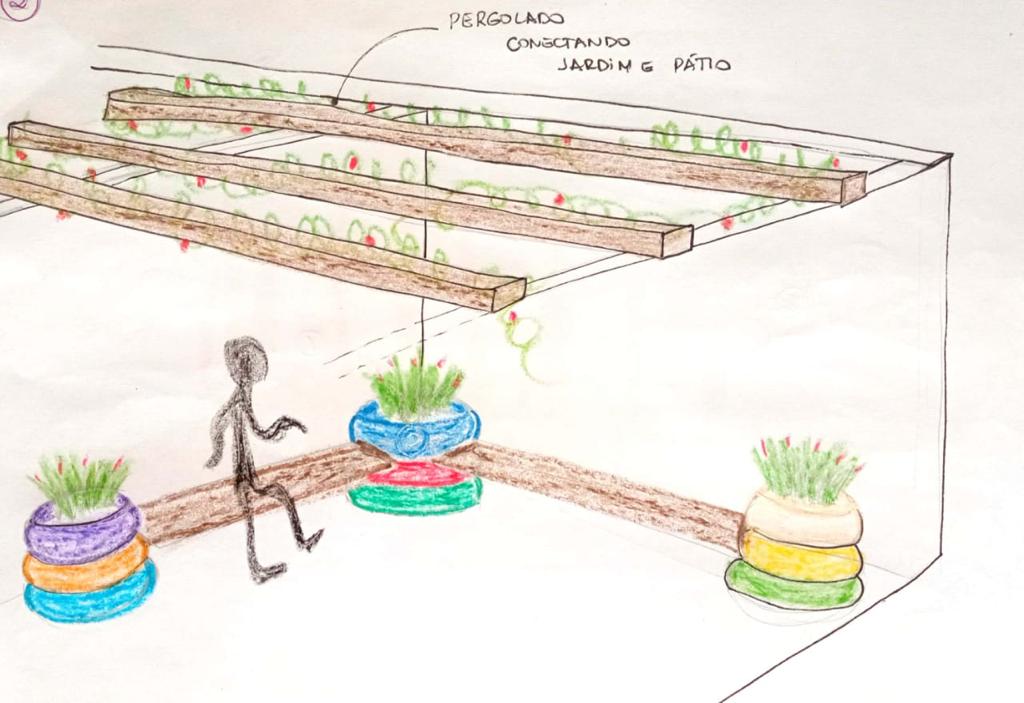 2
PERGOLADO
CONECTANDO
JARDIM E PÁTIO